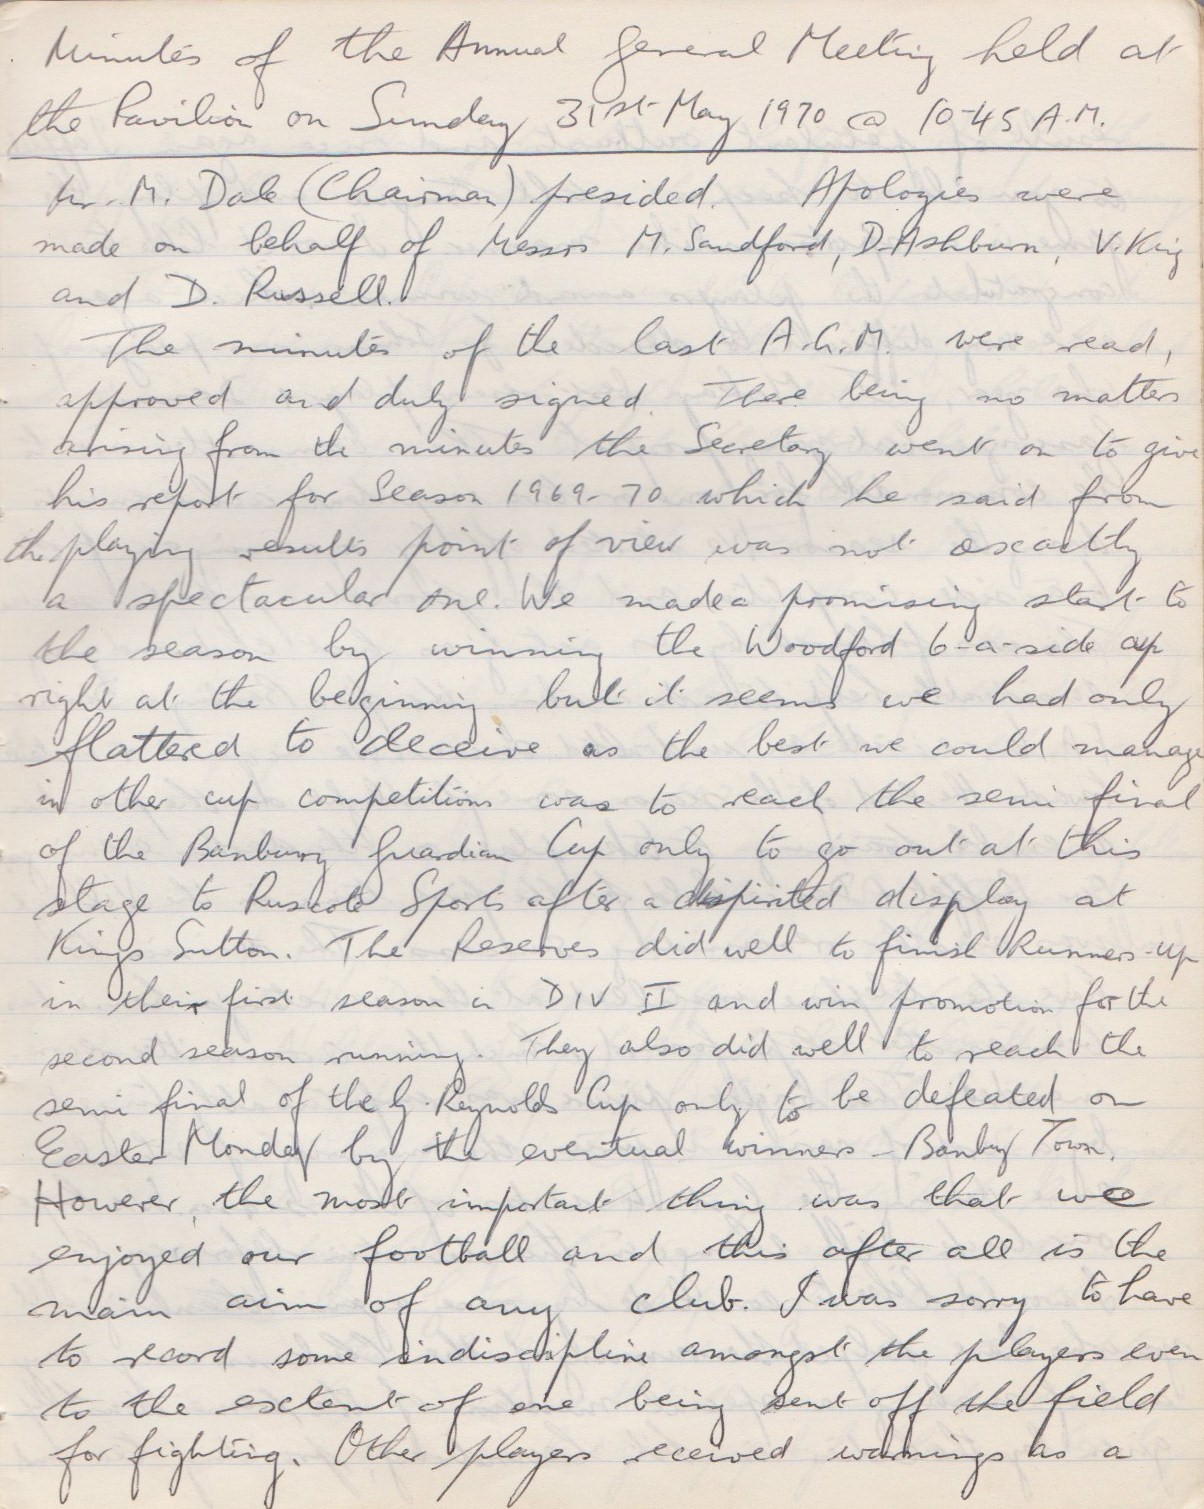 Minutes of the Annual General Meeting held at
the Pavilion on Sunday 31st May 1970 @ 10-45 A.M.
Mr. M. Dale (Chairman) presided. Apologies were
made on behalf of Messrs M. Sandford, D. Ashburn, V. King
and D. Russell.
The minutes of the last A.G.M. were read,
approved and duly signed. There being no matters
arising from the minutes the Secretary went on to give
his report for Season 1969-70 which he said from
the playing results point of view was not exactly
a spectacular one. We made a promising start to
the season by winning the Woodford 6-a-side cup
right at the beginning but it seems we had only
flattered to deceive as the best we could manage
in other cup competitions was to reach the semi final
of the Banbury Guardian Cup only to go out at this
stage to Ruscote Sports after a dispirited display at
Kings Sutton. The Reserves did well to finish Runners-up
in their first season in DIV II and win promotion for the
second season running. They also did well to reach the
semi final of the G. Reynolds Cup only to be defeated on
Easter Monday by the eventual winners - Banbury Town.
However, the most important thing was that we
enjoyed our football and this after all is the
main aim of any club. I was sorry to have
to record some indiscipline amongst the players even
to the extent of one being sent off the field
for fighting. Other players received warnings as a